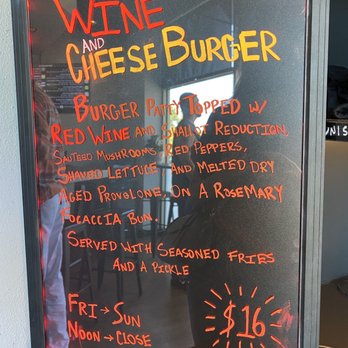 WINE
AND
CHEESE BURGER
BURGER PATTY TOPPED W/
RED WINE AND SHALLOT REDUCTION,
SAUTEED MUSHROOMS, RED PEPPERS,
SHAVED LETTUCE AND MELTED DRY
AGED PROVOLONE, ON A ROSEMARY
FOCACCIA BUN.
SERVED WITH SEASONED FRIES
AND A PICKLE
FRI → SUN
NOON → CLOSE
$16